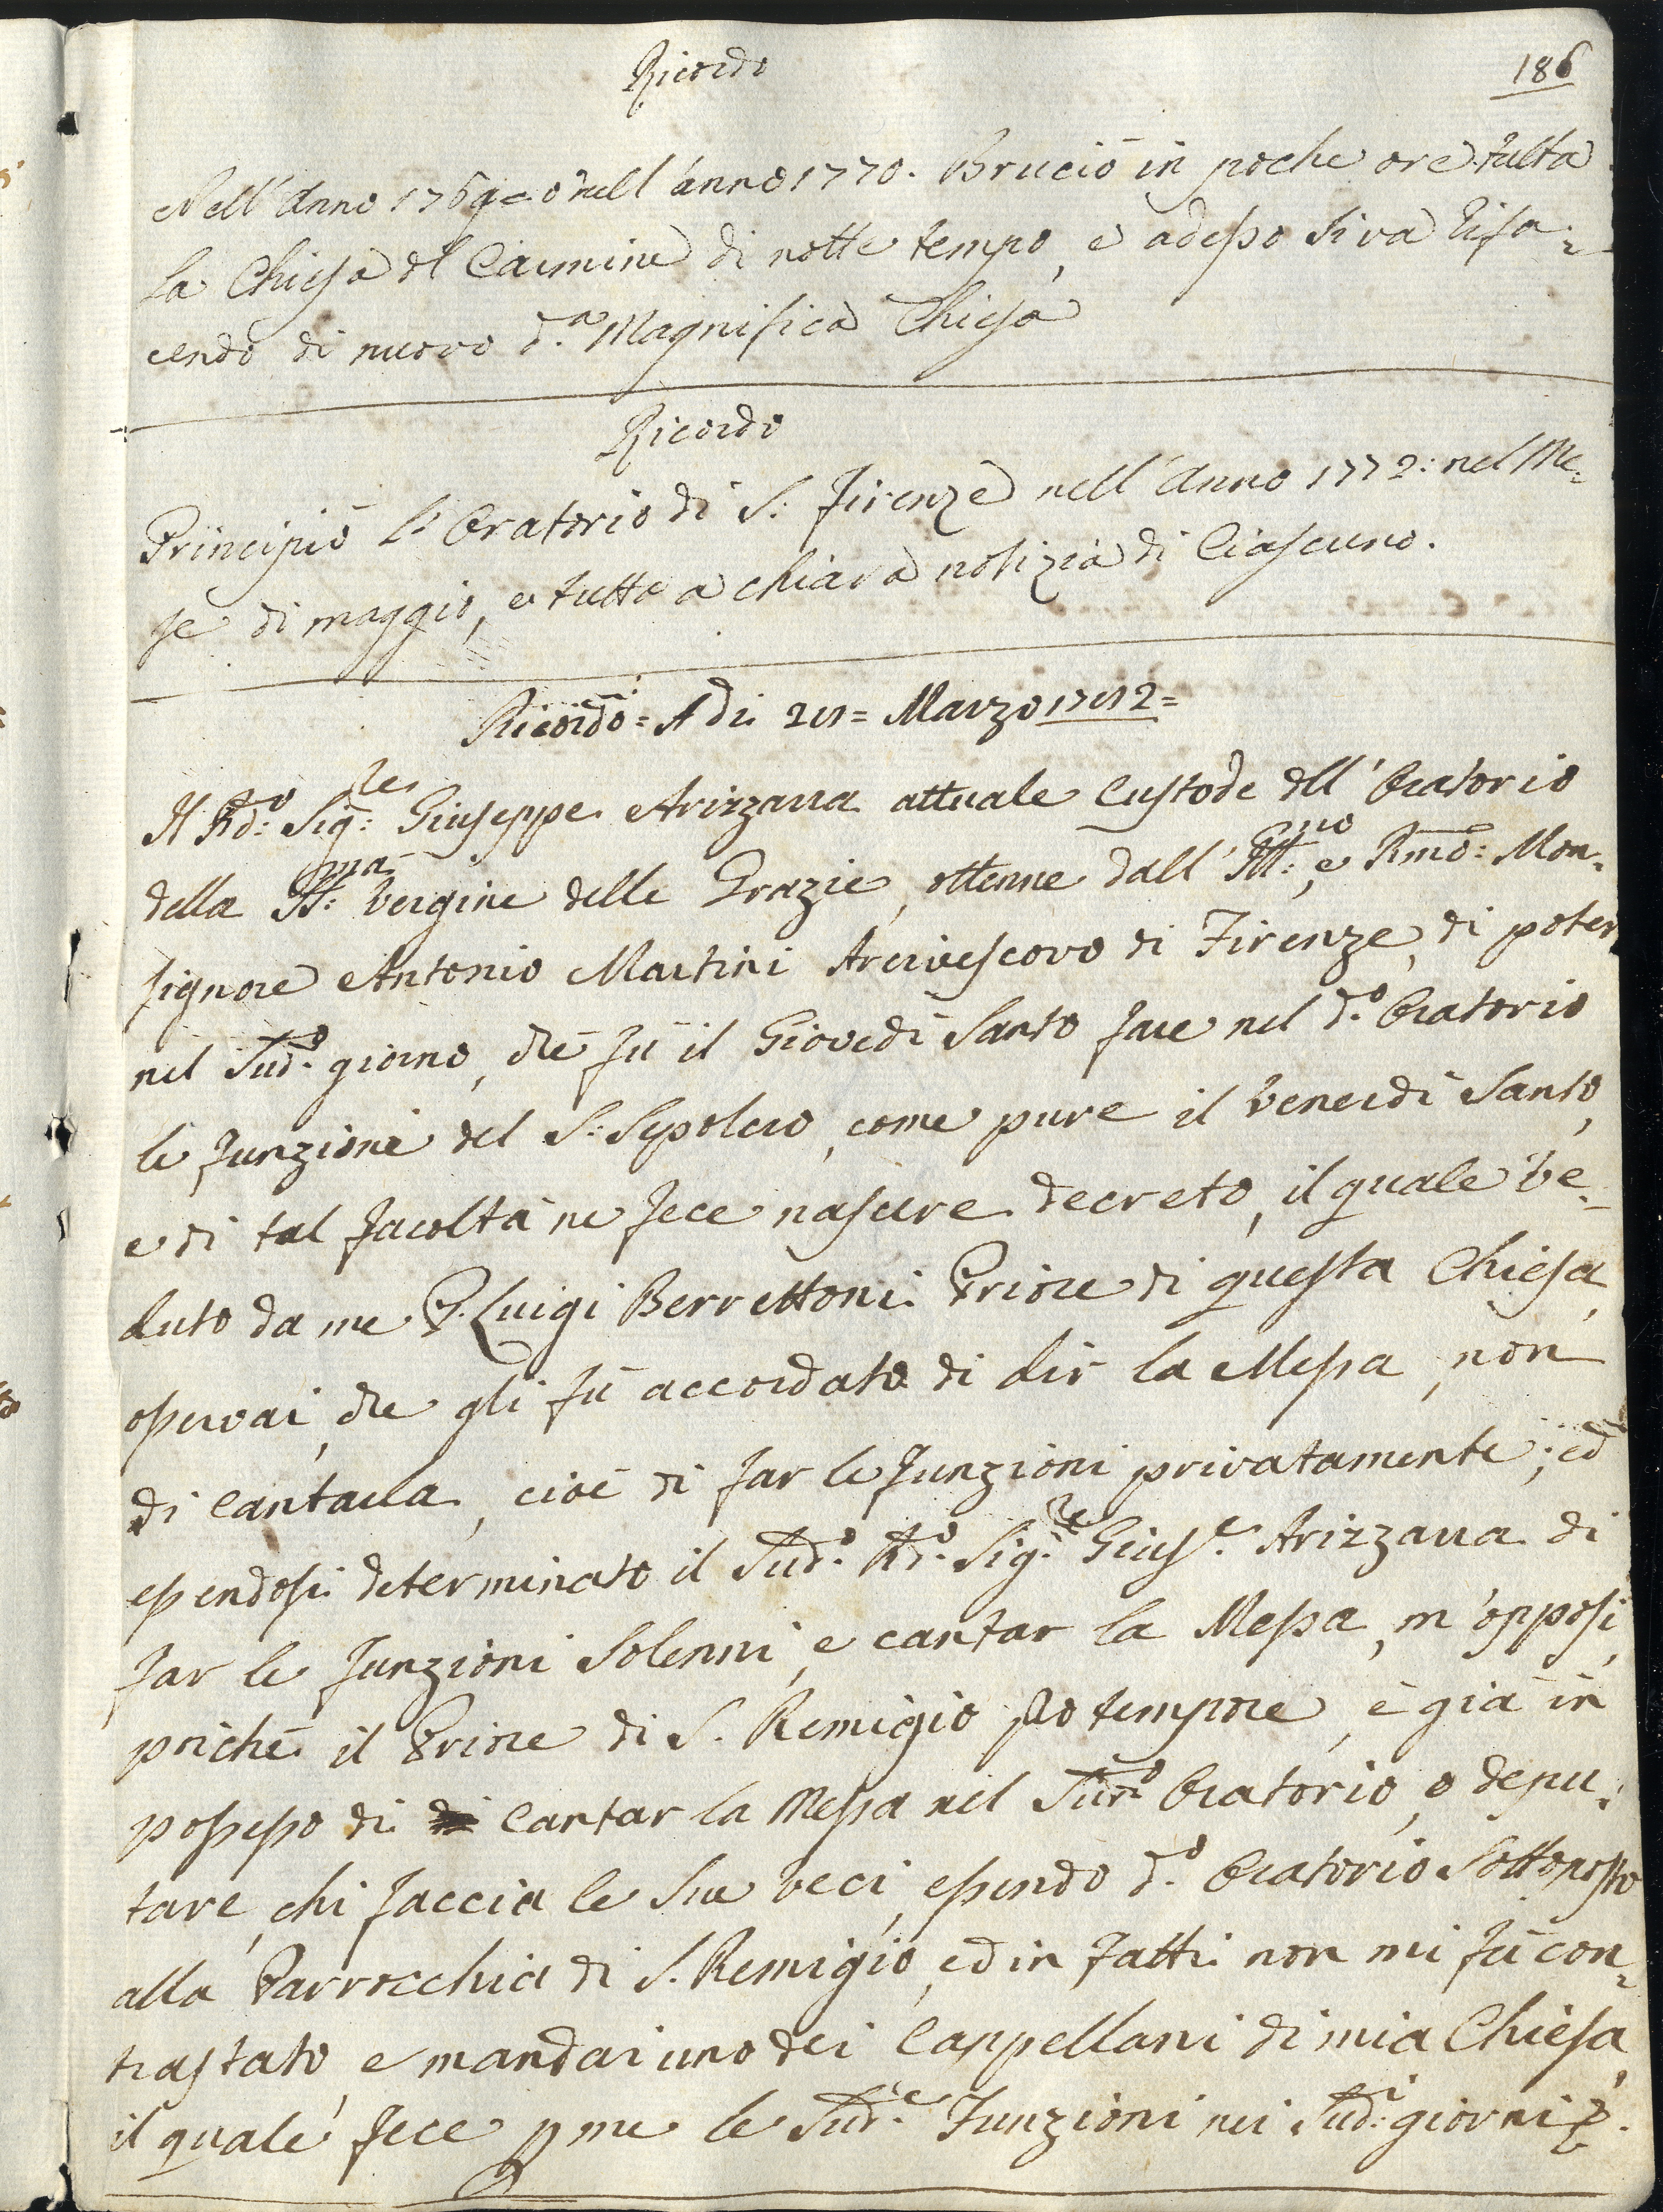 Ricordo
186
Nell'Anno 1769= o nell'anno 1770. Bruciò in poche ore tutta
la Chiesa dl Carmine di notte tempo, e adesso si va rifa=
cendo di nuovo d.ª Magnifica Chiesa
Ricordo
Principiò L'Oratorio di S: Firenze nell'Anno 1772: nel Me=
se di maggio, e tutto a chiara notizia di Ciascuno.
Ricordo = A di Marzo
Il Rdo: Sig:re Giuseppe Arizzara attuale Custode dll' Oratorio
della SS:ma Vergine delle Grazie, ottenne dall' Ill:mo e Rmo: Mon=
signore Antonio Martini Arcivescovo di Firenze, di poter
nel Sud.o giorno, che fù il Giovedì Santo fare nel d.o Oratorio
le funzioni del S: Sepolcro, come pure il Venerdì Santo,
e di tal facoltà ne fece nascere decreto, il quale ve=
duto da me P. Luigi Berrettoni Priore di questa Chiesa,
osservai, che gli fù accordato di dir la Messa, non
di cantarla, cioè di far le funzioni privatamente; ed
essendosi determinato il Sud.o Rd.o Sig.re Gius.e Arizzara di
far le funzioni Solenni, e cantar la Messa, m'opposi,
poichè il Priore di S. Remigio pro tempore, è già in
possesso di cantar la Messa nel Sud.o Oratorio, o depu=
tare, chi faccia le sue veci, essendo d.o Oratorio Sottoposto
alla Parrocchia di S. Remigio, ed in fatti non mi fù con=
trastato, e mandai uno dei Cappellani di mia Chiesa,
il quale fece p me le Sud.e Funzioni nei Sud:i giorni